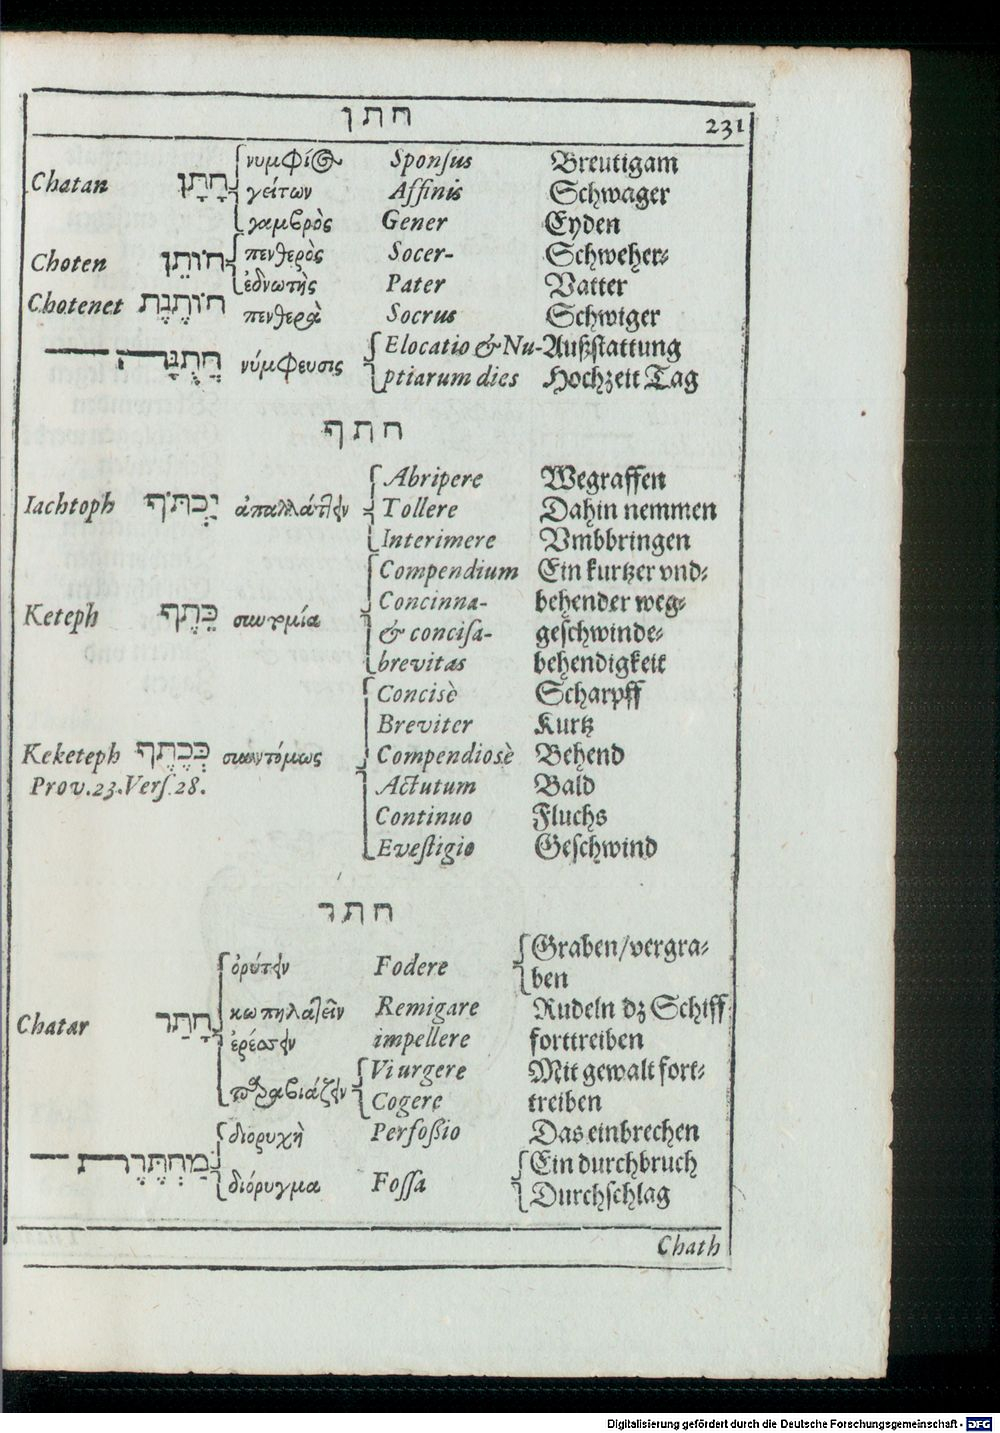 חתן 231
νυμφίος Sponſus Breutigam
Chatan חָתָן γείτων Affinis Schwager
γαμβρὸς Gener Eyden
Choten חוֹתֵן πενθερὸς Socer- Schweher-
ἐδνωτὴς Pater Vatter
Chotenet חוֹתֶנֶת πενθερὰ Socrus Schwiger
νύμφευσις Elocatio & Nu- Außſtattung
ptiarum dies Hochzeit Tag
חתף
Abripere Wegraffen
Iachtoph Tollere Dahin nemmen
Interimere Vmbbringen
Compendium Ein kurtzer vnd-
Concinna- behender weg-
Keteph כֶּתֶף & conciſa- geſchwinde-
brevitas behendigkeit
Concisè Scharpff
Breviter Kurtz
Keketeph כְּכֶתֶף Compendiosè Behend
Prov. 23. Verſ. 28. Actutum Bald
Continuo Fluchs
Eveſtigio Geſchwind
חתר
Graben/vergra-
Fodere ben
Remigare Rudeln dz Schiff
Chatar חָתַר impellere forttreiben
Vi urgere Mit gewalt fort-
Cogere treiben
διορυχὴ Perfoßio Das einbrechen
Ein durchbruch
διόρυγμα Foſſa Durchſchlag
Chath
Digitalisierung gefördert durch die Deutsche Forschungsgemeinschaft - DFG